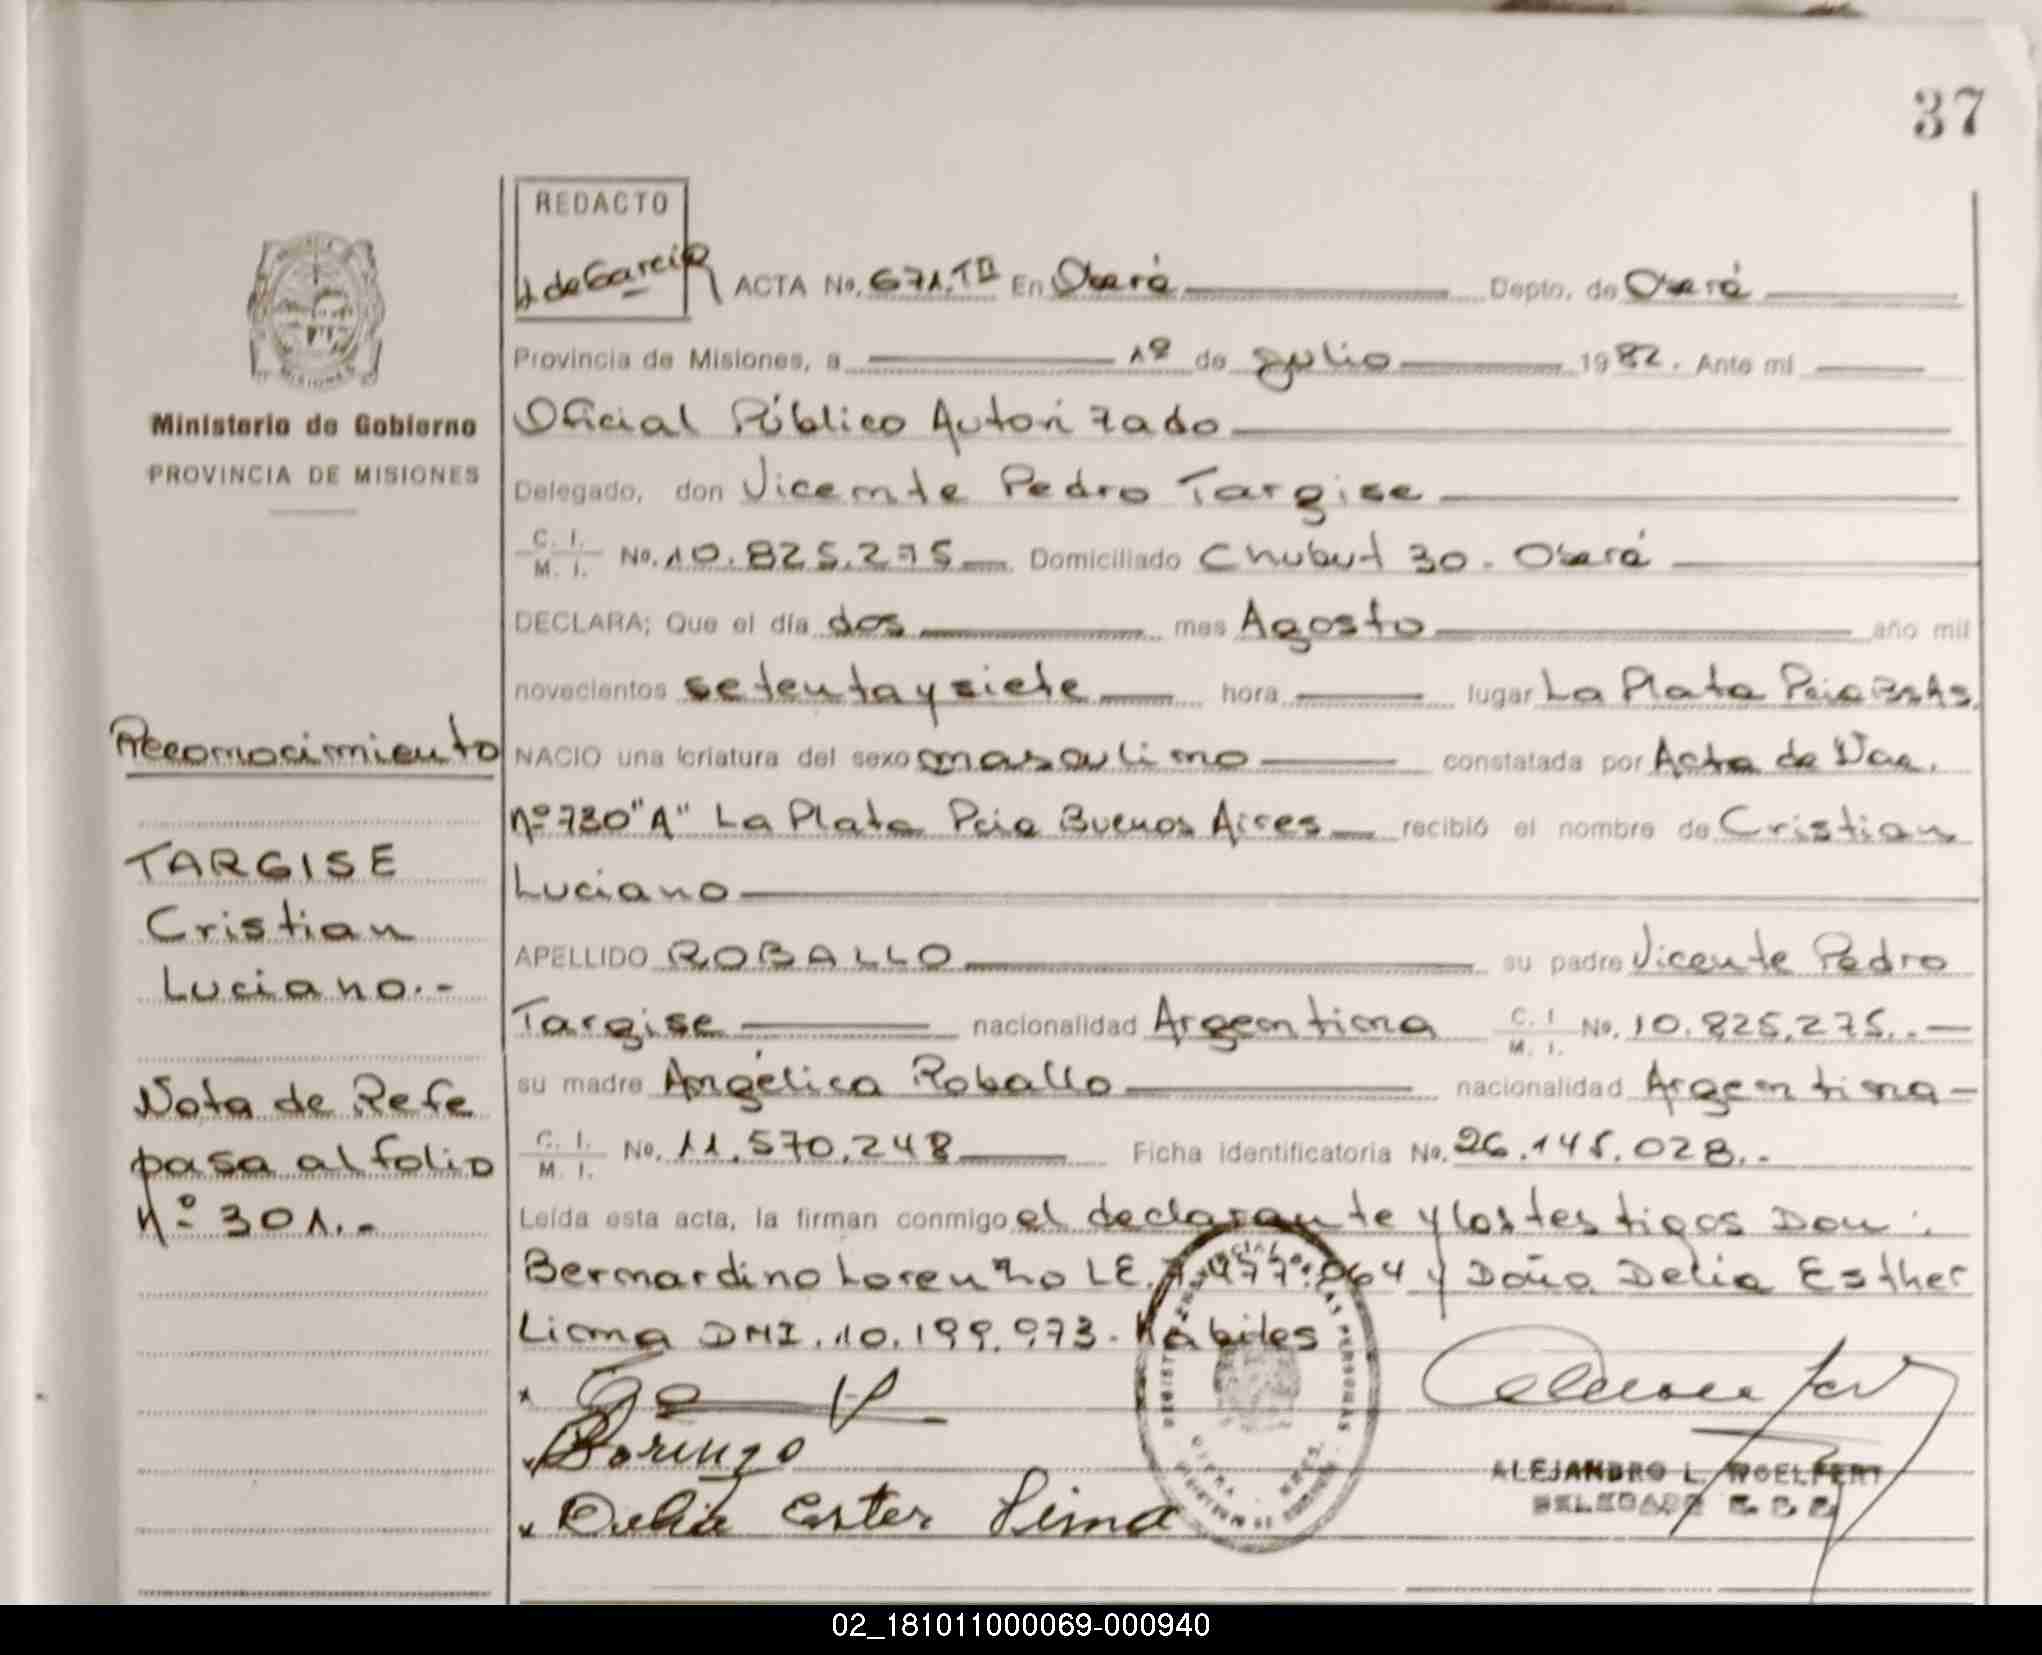 37
REDACTO
de Garcia
ACTA No. 671.TII En Oberá Depto. de Oberá
Provincia de Misiones, a 1º de Julio 1982. Ante mí
Oficial Público Autorizado
Delegado, don Vicente Pedro Targise
C. I. M. I. No. 10.825.275 Domiciliado Chubut 30. Oberá
DECLARA; Que el día dos mes Agosto año mil
novecientos setenta y siete hora lugar La Plata Pcia Bs As.
NACIO una criatura del sexo masculino constatada por Acta de Nac.
nº 730 "A" La Plata Pcia Buenos Aires recibió el nombre de Cristian
Luciano
APELLIDO ROBALLO su padre Vicente Pedro
Targise nacionalidad Argentina C. I M. I. No. 10.825.275.-
su madre Angélica Roballo nacionalidad Argentina-
C. I. M. I. No. 11.570.248 Ficha identificatoria No. 26.145.028.-
Leída esta acta, la firman conmigo el declarante y los testigos Don:
Bernardino Lorenzo LE. y Doña Delia Esther
Lima DNI. 10.199.973. Hábiles
Lorenzo
Delia Ester Lima
ALEJANDRO L. WOELFERT
DELEGADO
Ministerio de Gobierno
PROVINCIA DE MISIONES
Reconocimiento
TARGISE
Cristian
Luciano.-
Nota de Refe
pasa al folio
nº 301.-
02_181011000069-000940